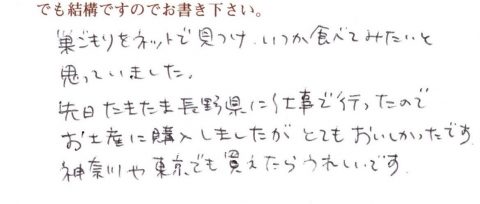 でも結構ですのでお書き下さい。
巣ごもりをネットで見つけ、いつか食べてみたいと
思っていました。
先日たまたま長野県に仕事で行ったので
お土産に購入しましたが とてもおいしかったです
神奈川や東京でも買えたらうれしいです。